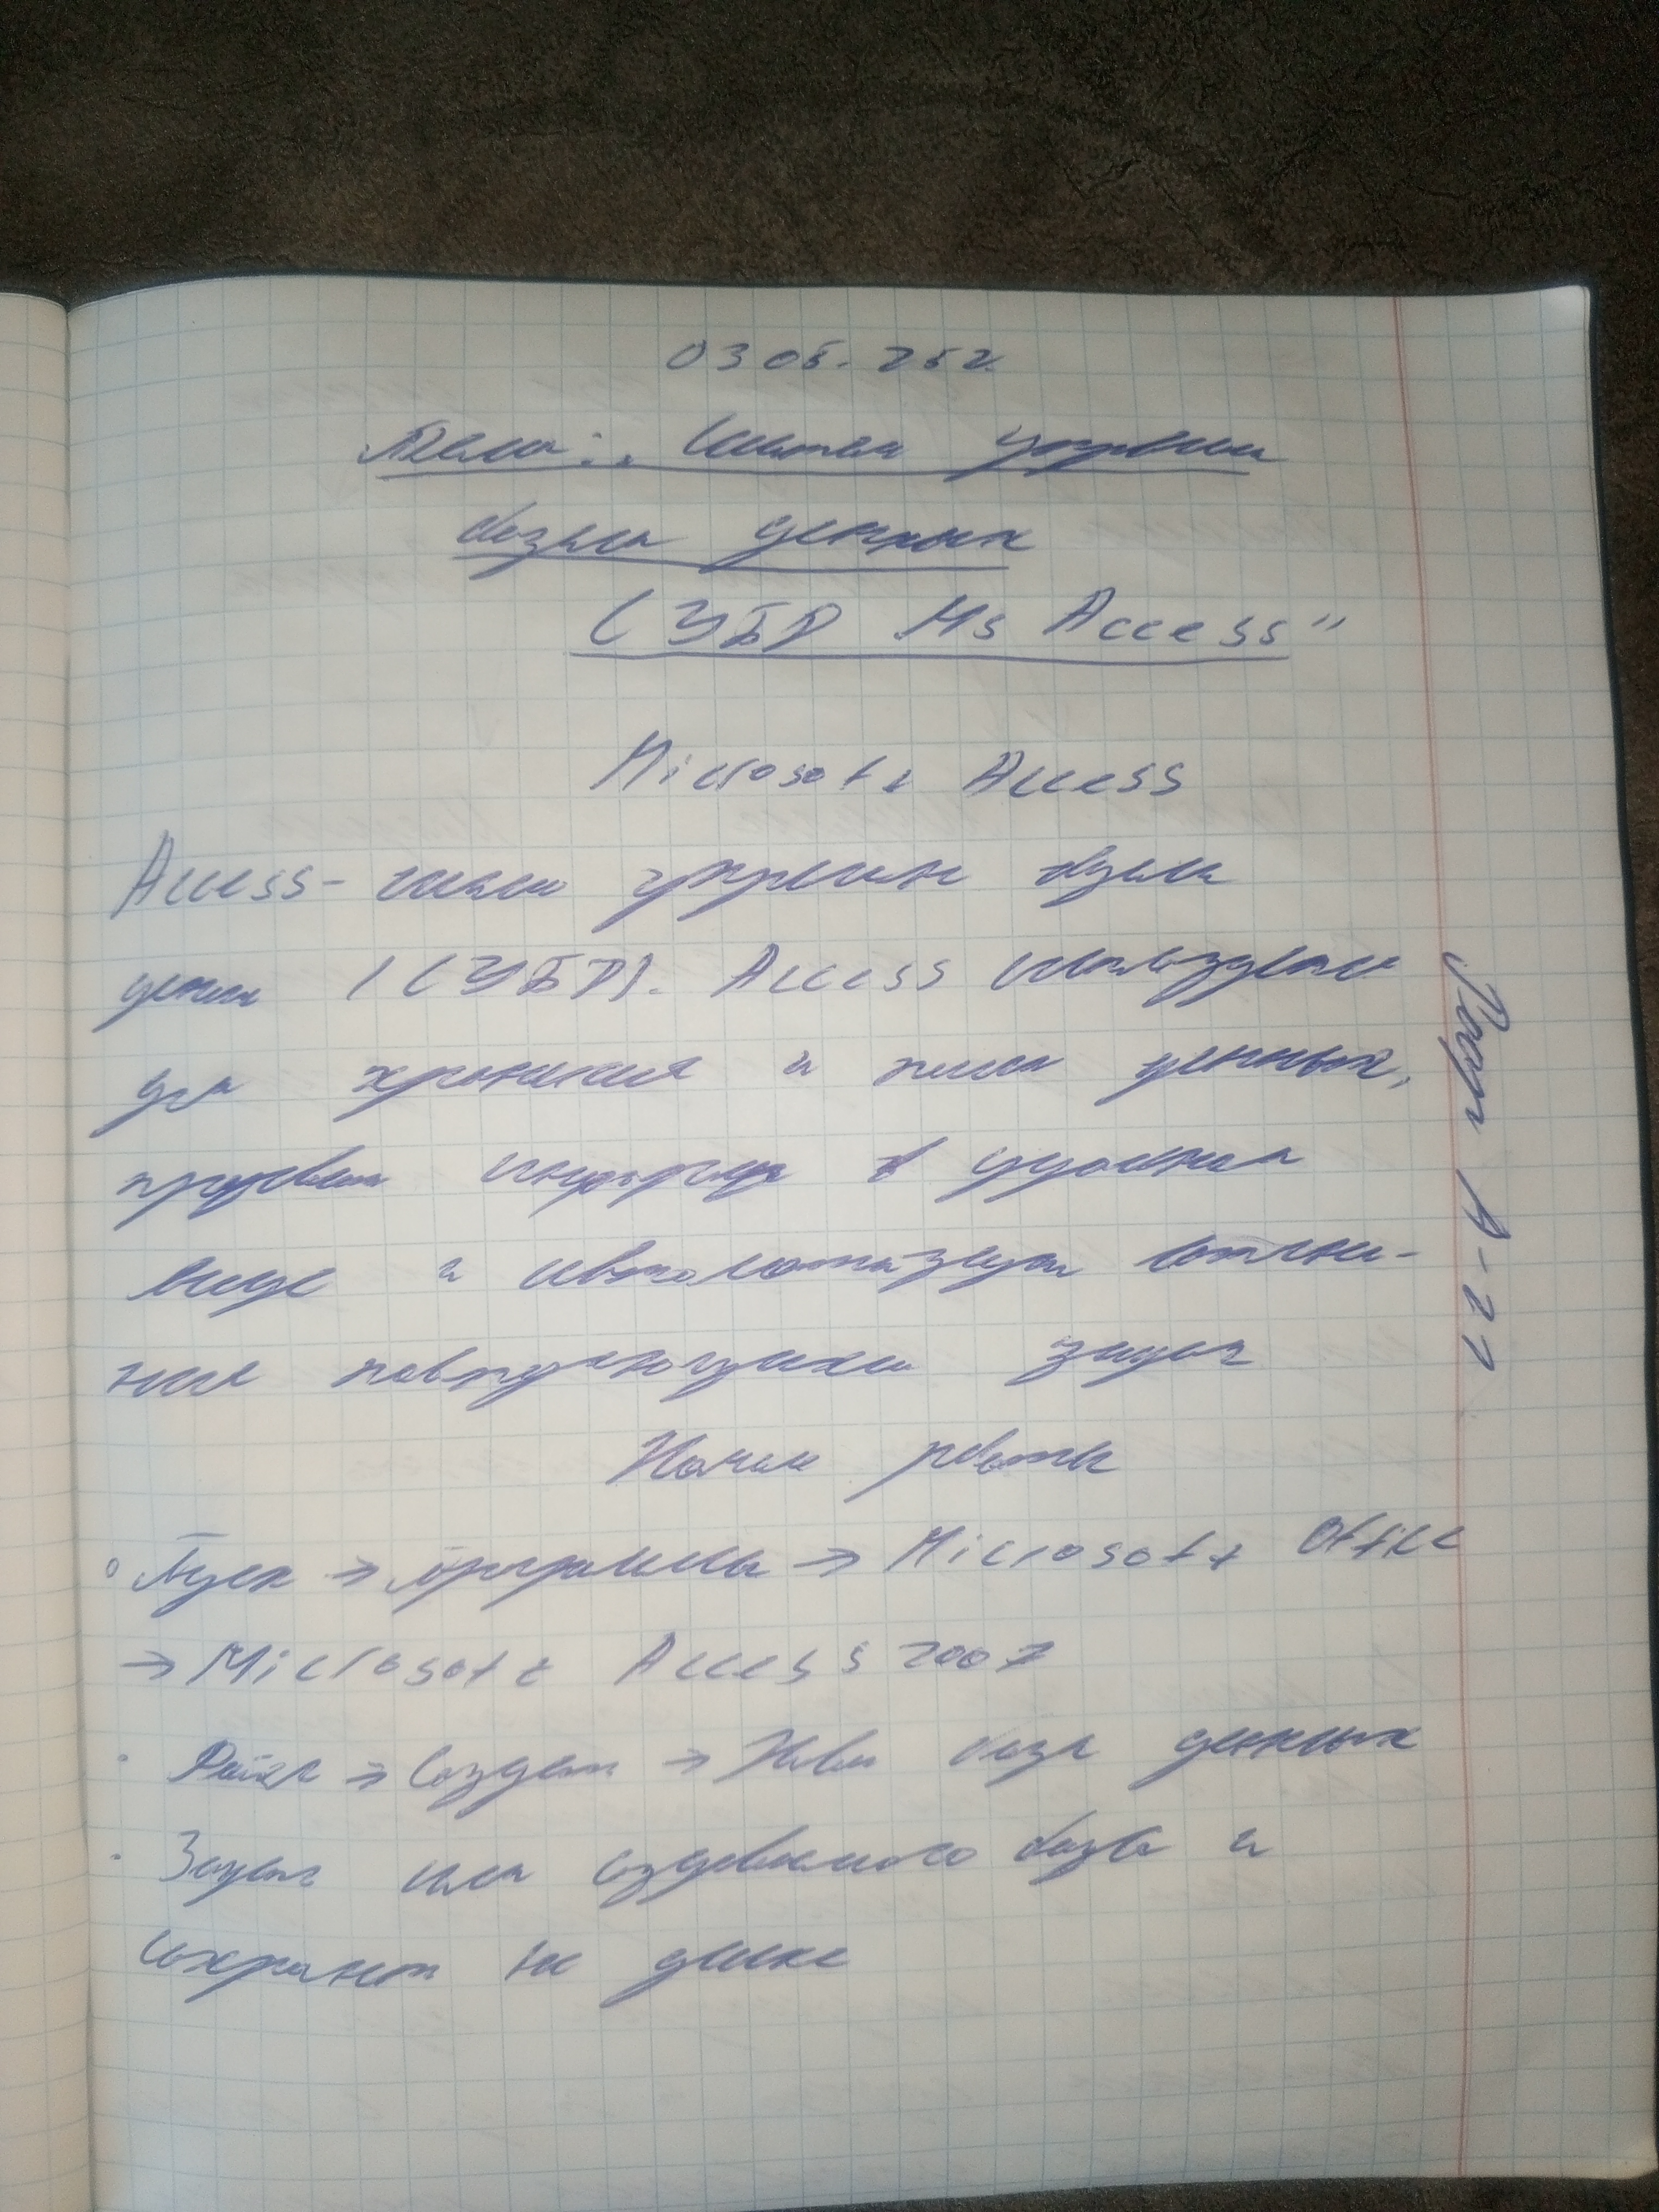 03 05. 25г.
Тема: „Система управления
базами данных
СУБД Ms Access"
Microsoft Access
Access - система управления базами
данных (СУБД). Access используется
для хранения и поиска данных,
информации в удобном
виде и автоматизации выполне-
ния повторяющихся задач
Начало работы
Пуск → программы → Microsoft Office
→ Microsoft Access 2007
Файл → Создать → Новая база данных
Задать имя создаваемого базы и
сохранить на диске
А-21